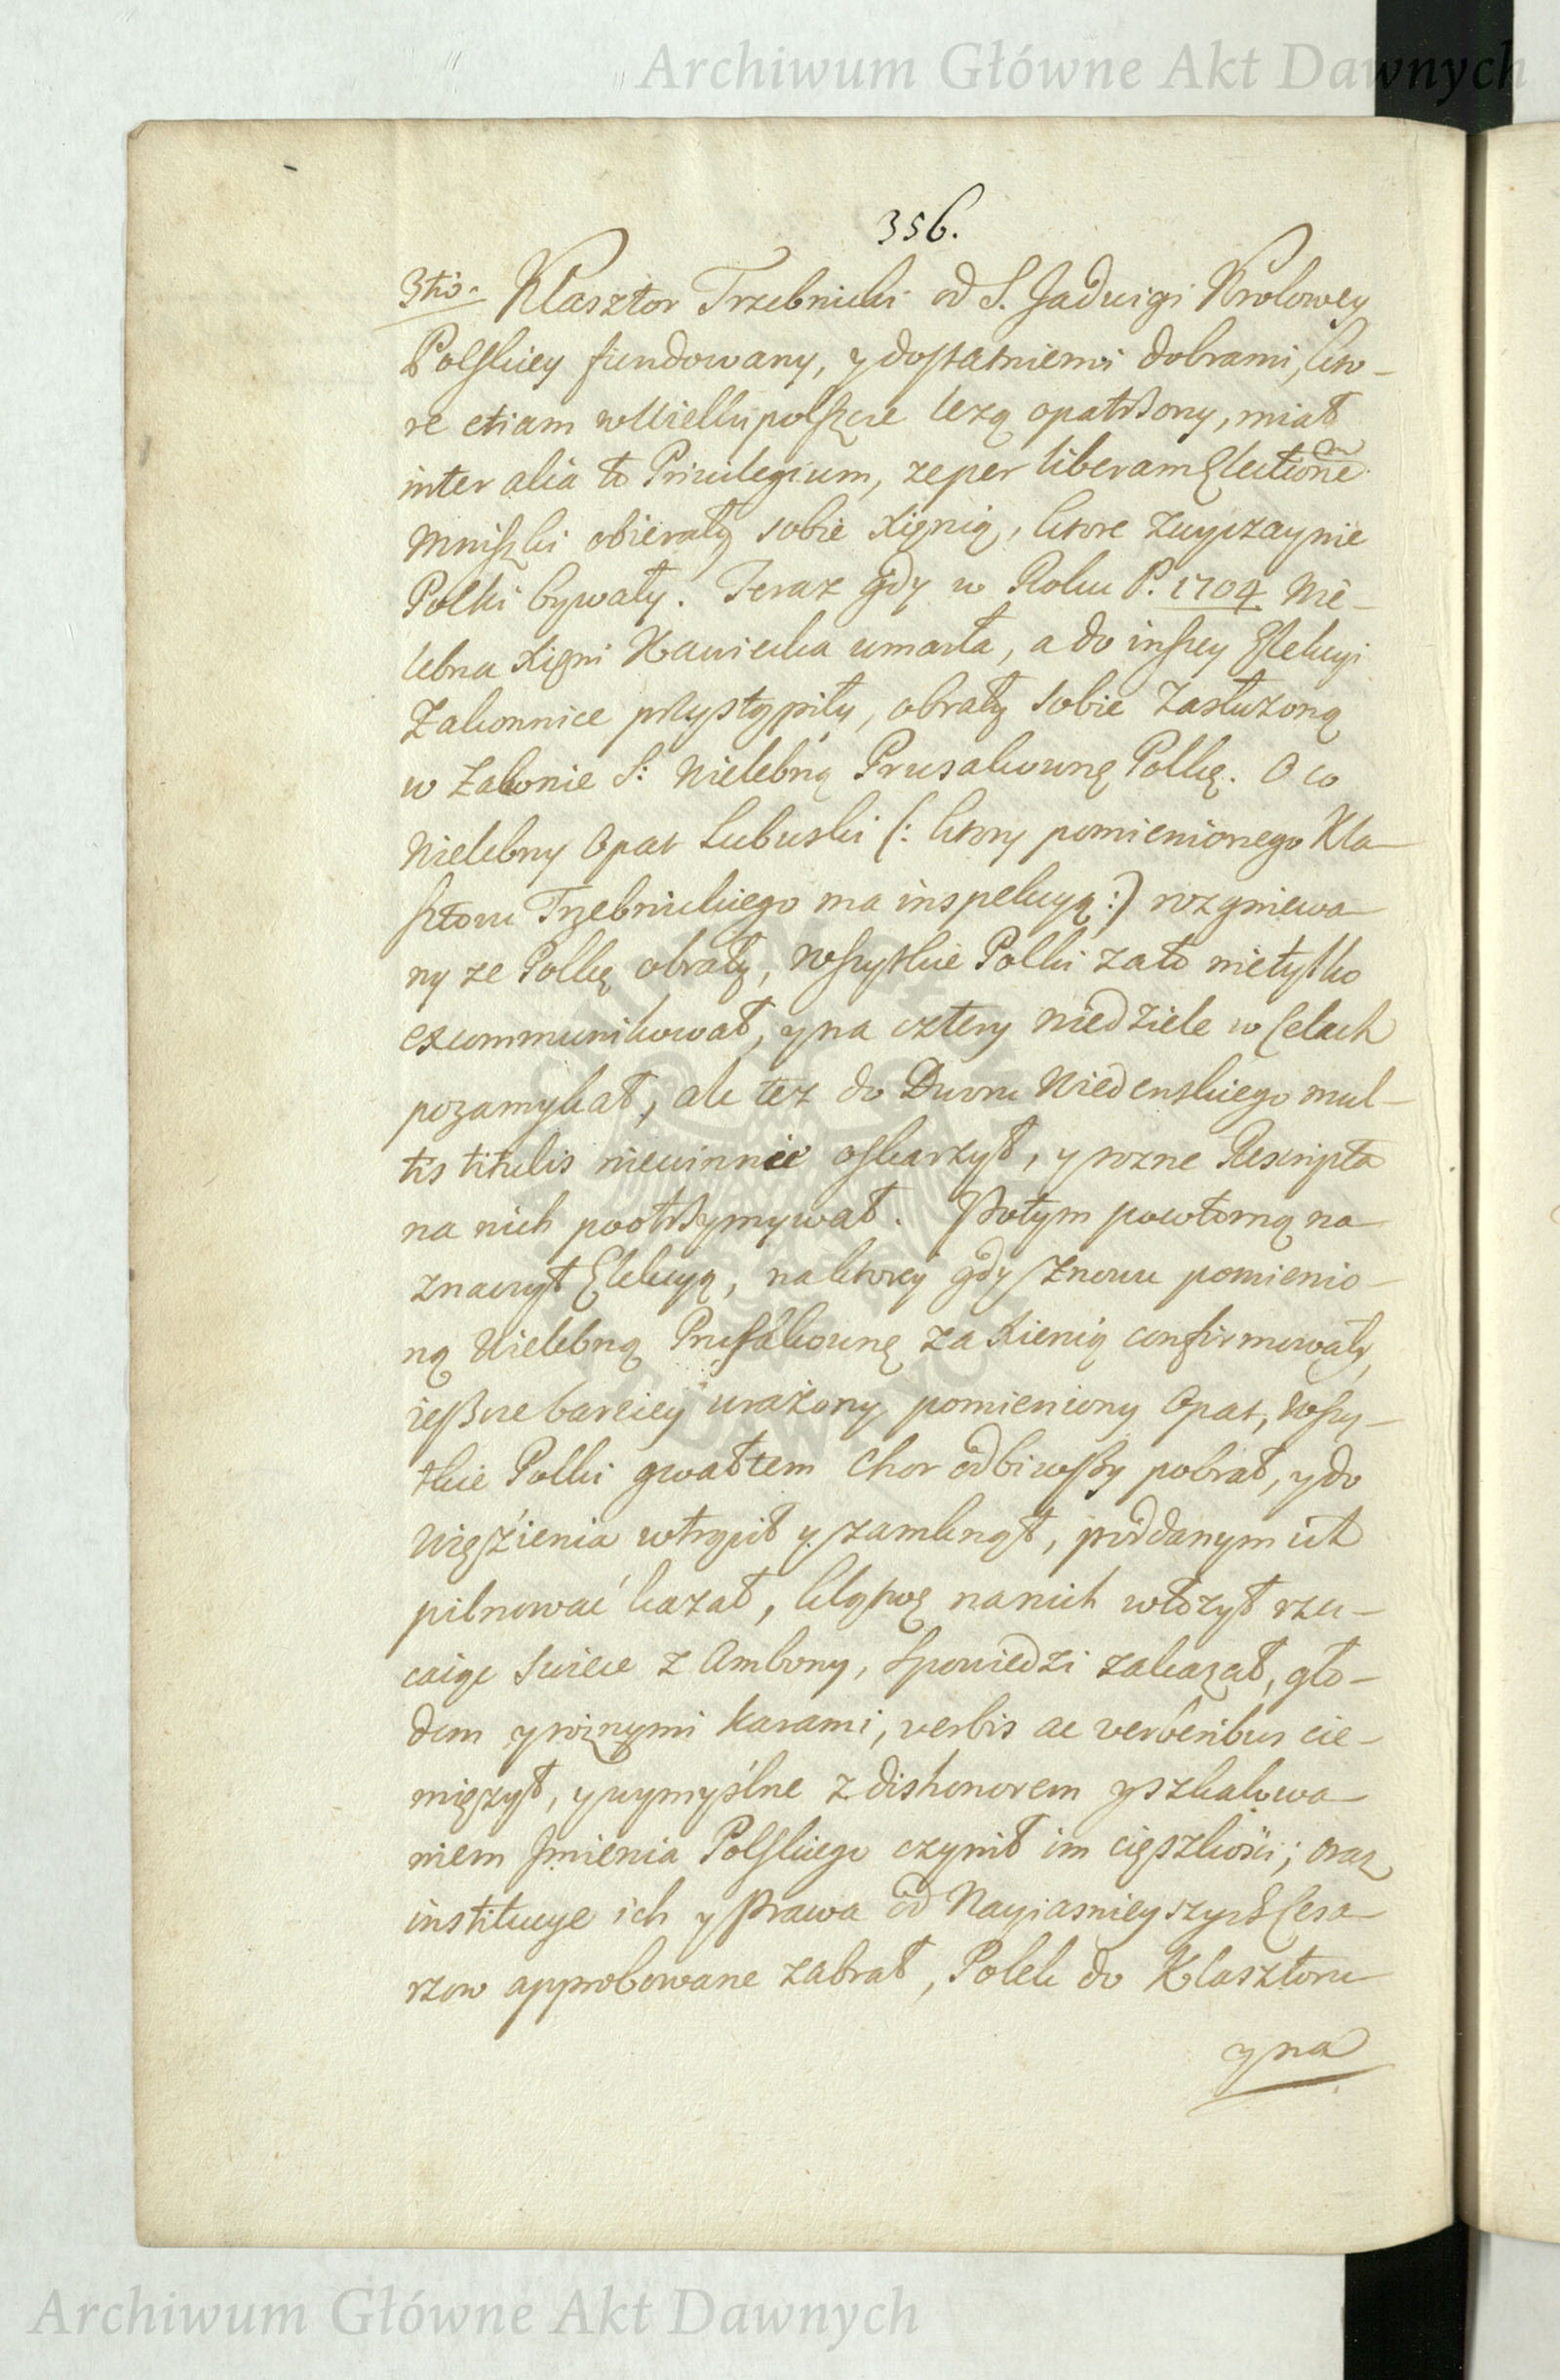 Archiwum Główne Akt Dawnych
356.
3tio. Klasztor Trzebnicki od S. Jadwigi Krolowey
Polskiey fundowany, y dostatniemi dobrami, kto-
re etiam w Wielkiipolszcze lezą opatrzony, miał
inter alia to Priuilegium, ze per liberam Electionē
Mniszki obierały sobie Xięnią, ktore zwyczaynie
Polki bywały. Teraz gdy w Roku P. 1704 Wie-
lebna Xięni Kawiecka umarła, a do inszey Elekcyi
Zakonnice przystąpiły, obrały sobie zasłużoną
w Zakonie S: Wielebną Prusakownę Polkę. O co
Wielebny Opat Lubuski (: ktory pomienionego Kla-
sztoru Trzebnickiego ma inspekcyą :) rozgniewa-
ny ze Polkę obrały, wszytkie Polki zato nietylko
excommunikował, y na cztery niedziele w Celach
pozamykał, ale tez do Dworu Wiedenskiego mul-
tis titulis niewinnie oskarzył, y rozne Rescripta
na nich pootrzymywał. Potym powtorną na-
znaczył Elekcyą, na ktorey gdy znowu pomienio-
ną Wielebną Prusakownę za Xienią confirmowały,
ieszcze barciey urażony pomieniony Opat, wszy-
tkie Polki gwałtem Chor odbiwszy pobrał, y do
Więzienia wtrącił y zamknął, poddanym ich
pilnować kazał, klątwę na nich włożył rzu-
caiąc swiece z Ambony, spowiedzi zakazał, gło-
dem y roznymi karami, verbis ac verberibus cie-
mięzył, y wymyślne z dishonorem y szkalowa-
niem Jmienia Polskiego czynił im cięszkości; oraz
institucye ich y Prawa od Nayiasnieyszych Cesa-
rzow approbowane zabrał, Polek do Klasztoru
y na
Archiwum Główne Akt Dawnych